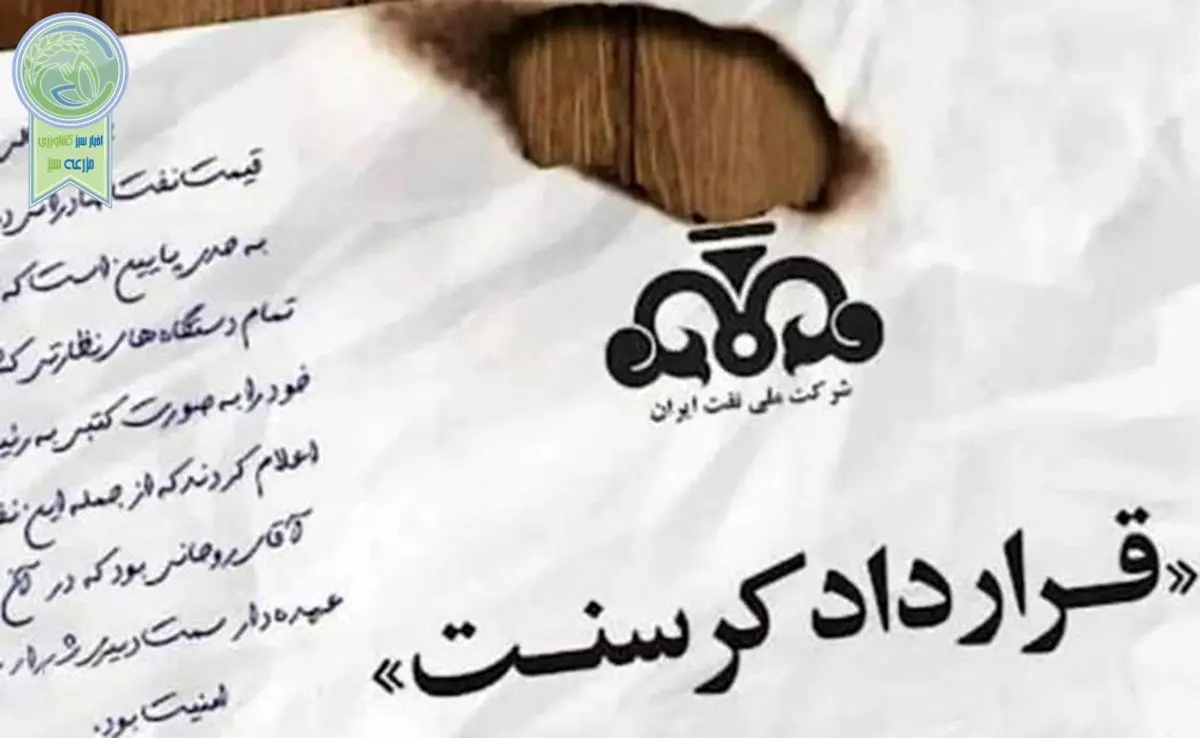 اخبار سبز کشاورزی
مزرعه سبز
قیمت نفت صادراتی
به حدی پایین است که
تمام دستگاه‌های نظارتی
خود را به صورت کتبی به
اعلام کردند که از جمله این
آقای روحانی بود که در
عهده‌دار سمت دبیری
امنیت بود.
شرکت ملی نفت ایران
«قرارداد کرسنت»